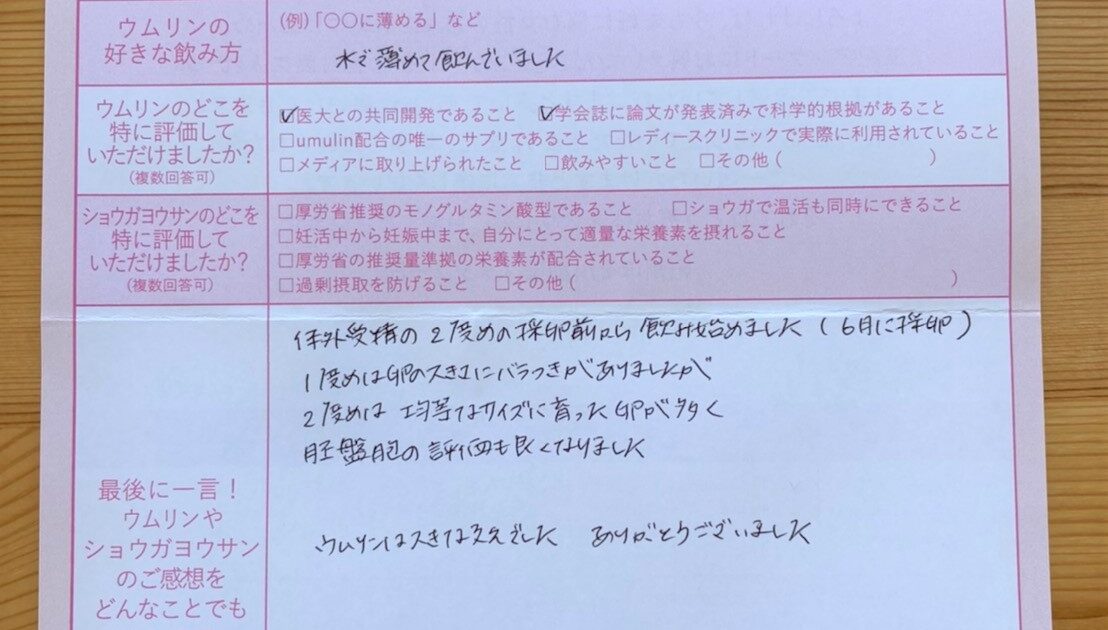 ウムリンの
好きな飲み方
(例)「〇〇に薄める」など
水で薄めて飲んでいました
ウムリンのどこを
特に評価して
いただけましたか?
(複数回答可)
☑医大との共同開発であること ☑学会誌に論文が発表済みで科学的根拠があること
□umulin配合の唯一のサプリであること □レディースクリニックで実際に利用されていること
□メディアに取り上げられたこと □飲みやすいこと □その他( )
ショウガヨウサンのどこを
特に評価して
いただけましたか?
(複数回答可)
□厚労省推奨のモノグルタミン酸型であること □ショウガで温活も同時にできること
□妊活中から妊娠中まで、自分にとって適量な栄養素を摂れること
□厚労省の推奨量準拠の栄養素が配合されていること
□過剰摂取を防げること □その他( )
体外受精の2度めの採卵前から飲み始めました(6月に採卵)
1度めは卵の大きさにバラつきがありましたが
2度めは均等なサイズに育った卵が多く
胚盤胞の評価も良くなりました
ウムリンは大きな支えでした ありがとうございました
最後に一言!
ウムリンや
ショウガヨウサン
のご感想を
どんなことでも